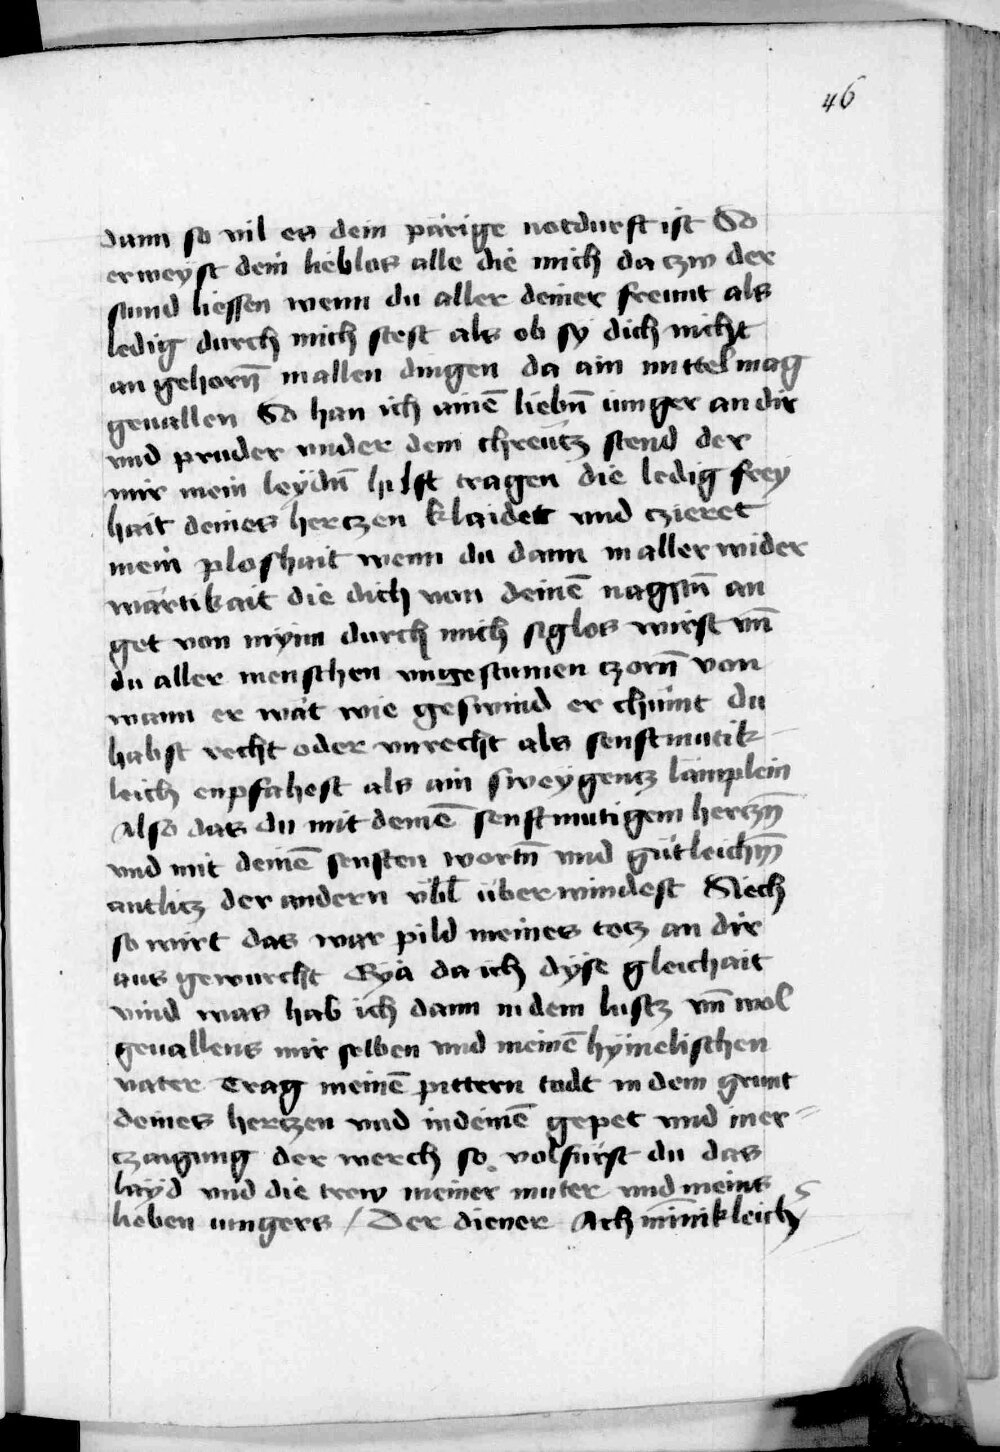 46
dann so uil es dein pärige notdurft ist So
erweyst dein lieblos alle die mich da czw der
stund liessen wenn du aller deiner freunt als
ledig durch mich stest als ob sy dich nicht
an gehorn̄ in allen dingen da ain mittel mag
geuallen So han ich ainē liebn̄ iunger an dir
vnd pruder vnder dem chreutz stend der
mir mein leydn̄ hilft tragen die ledig frey
hait deines hertzen klaidett vnd czieret
mein ploshait wenn du dann in aller wider
wärtikait die dich von deinē nagstn̄ an
get von mynn durch mich siglos wirst vn̄
du aller menschen vngestumen czorn̄ von
wann er wät wie geswind er chumt du
habst recht oder vnrecht als senftmutik-
leich enpfahest als ain sweygentz lämplein
Also das du mit deinē senftmutigem hertzn̄
vnd mit deinē senften wortn̄ vnd gütleichm̄
antlitz der andern vbl̄ überwindest Siech
so wirt das war pild meines totz an dir
aus gewurcht Eyä da ich dyse gleichait
vind was hab ich dann in dem lustz vn̄ wol
geuallens mir selben vnd meinē hymelischen
vater Trag meinē pittern todt in dem grunt
deines hertzen vnd in deinē gepet vnd in er-
czaigung der werch so volfürst du das
layd vnd die trew meiner muter vnd meins
lieben iungers / Der diener Ach minnikleich